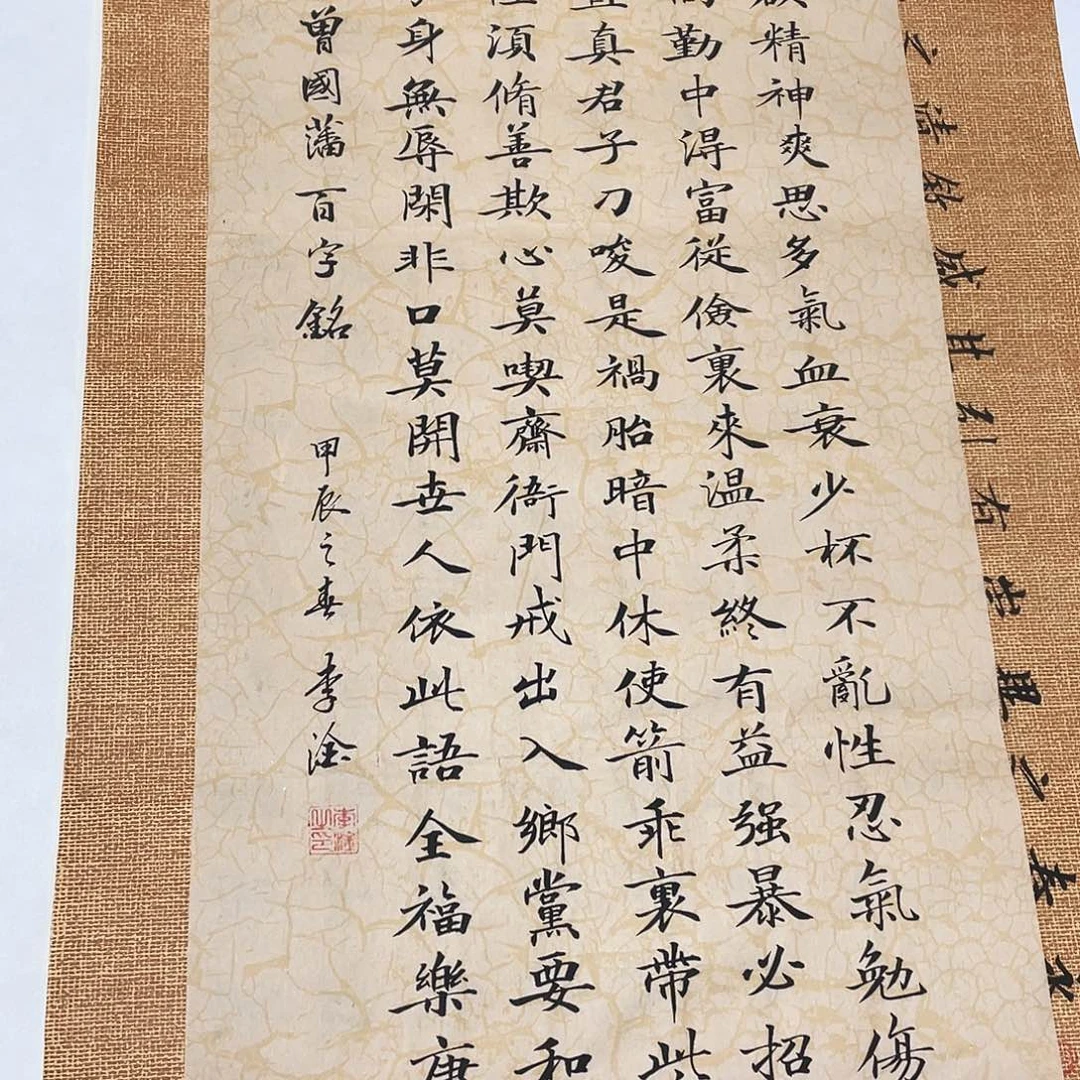 精神爽思多氣血衰少杯不亂性忍氣勉傷
勤中得富從儉裏來温柔終有益强暴必招
真君子刀唆是禍胎暗中休使箭乖裏帶些
湏脩善欺心莫喫齋衙門戒出入鄉黨要和
身無辱閑非口莫開世人依此語全福樂康
曾國藩百字銘 甲辰之春 李淦